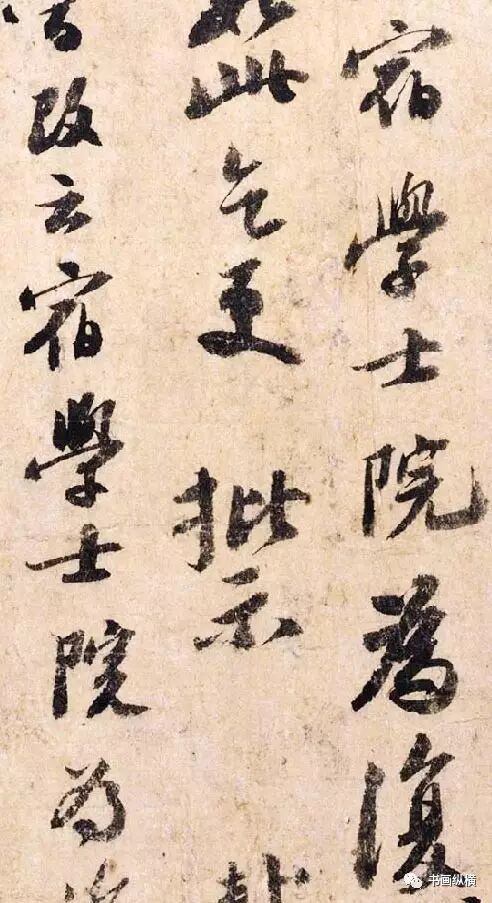 宿學士院爲復
此乞更 批示
改云宿學士院为
书画纵横